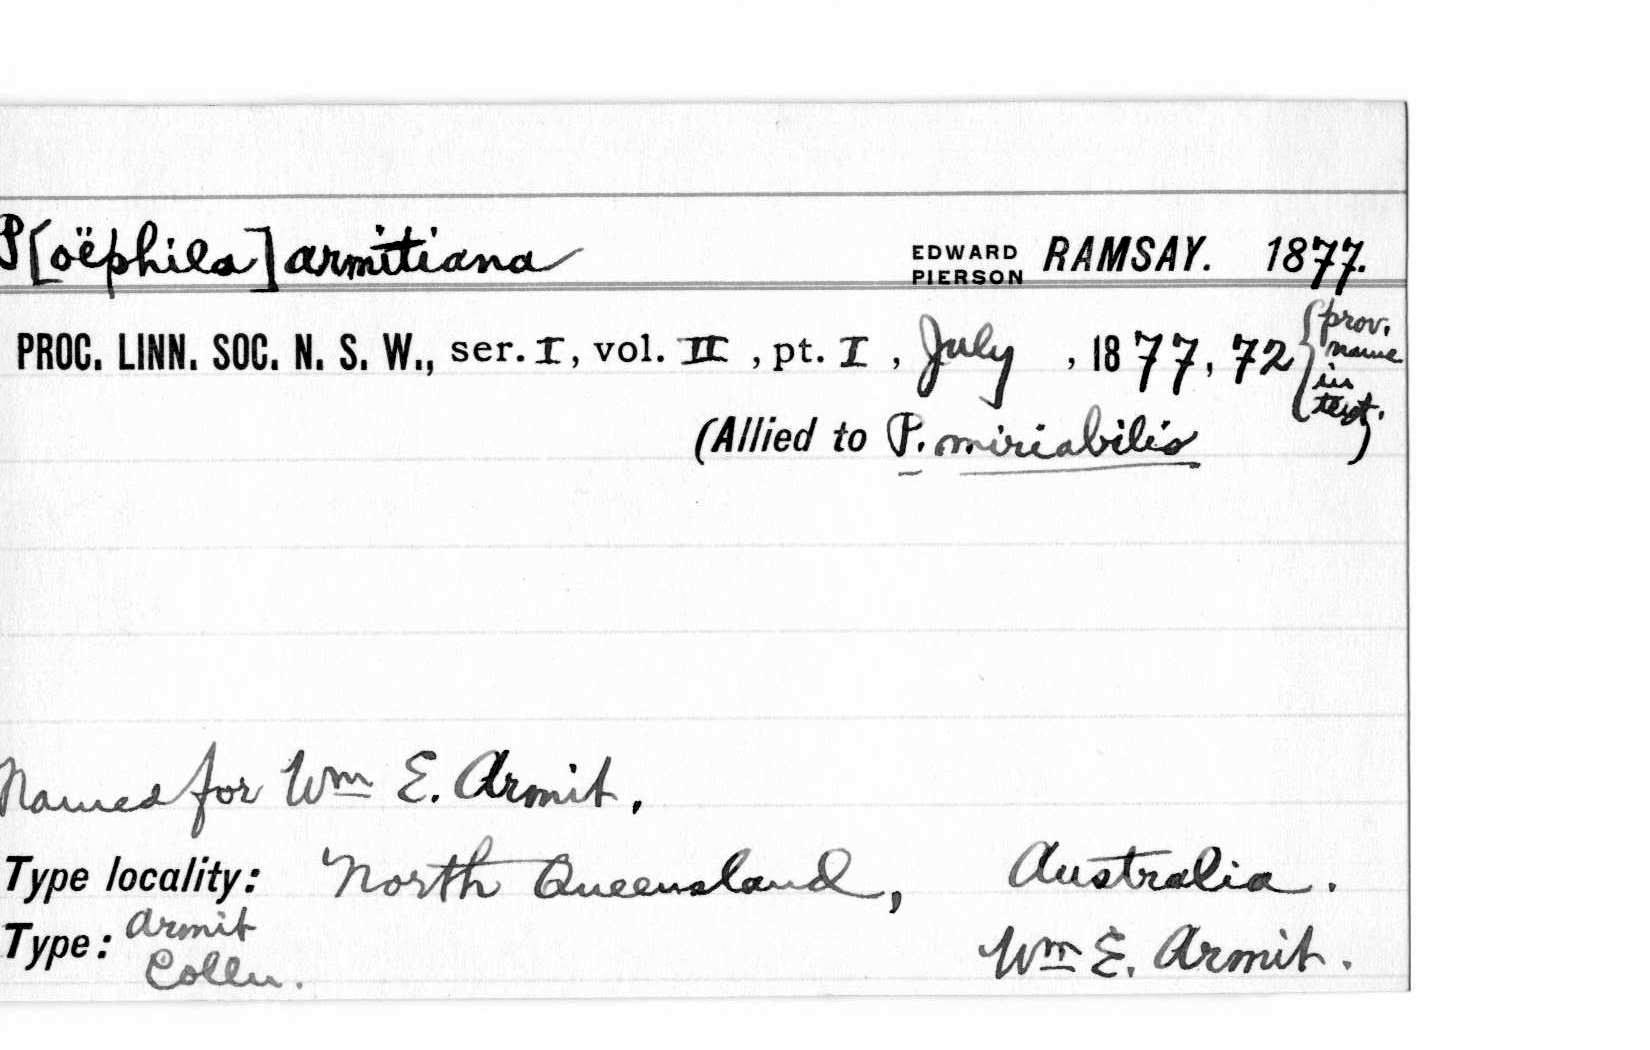 P[oëphila] armitiana EDWARD PIERSON RAMSAY. 1877.
PROC. LINN. SOC. N. S. W., ser. I, vol. II, pt. I, July, 1877, 72 {prov. name in text.
(Allied to P. miriabilis)
Named for Wm E. Armit.
Type locality: North Queensland, Australia.
Type: Armit Colln. Wm E. Armit.